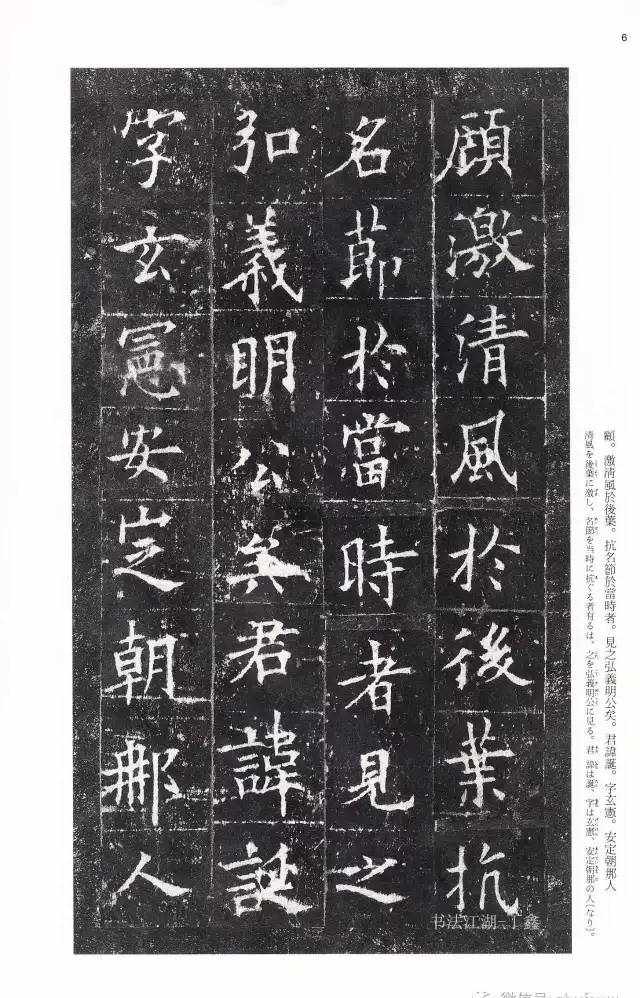 6
顧激清風於後葉抗
名節於當時者見之
弘義明公矣君諱誕
字玄憲安定朝那人
顧。激清風於後葉。抗名節於當時者。見之弘義明公矣。君諱誕。字玄憲。安定朝那人
清風を後葉に激し、名節を当時に抗ぐる者有るは、之を弘義明公に見る。君、諱は誕、字は玄憲、安定朝那の人(なり)。
书法江湖—丁鑫